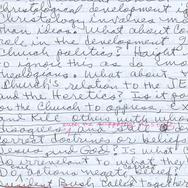 Christological development
Christology involves m
than ideas. What about Co
role in the development o
church politics? Haight
to ignore this as do
theologians. What about
Church's relation to the
and the Heretics? Is it
for the Church to oppress,
and Kill others with who
disagrees? and
correct doctrines or belief
mean God? Is what
do irrelevant to what the
Do actions negate Belief
President Bush called